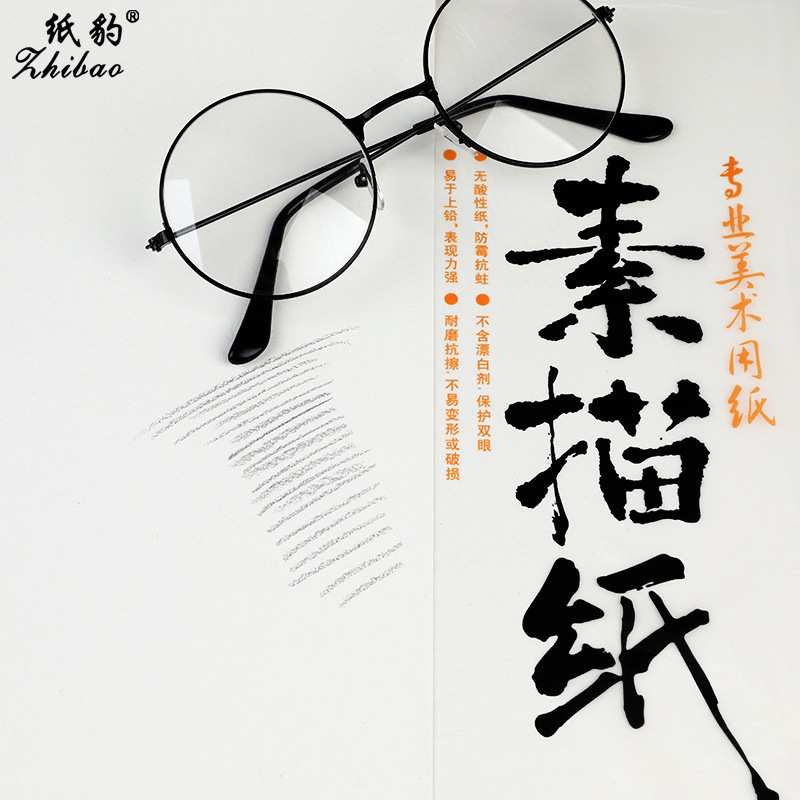 纸豹®
Zhibao
专业美术用纸
素描纸
● 无酸性纸，防霉抗蛀
● 不含漂白剂，保护双眼
● 易于上铅，表现力强
● 耐磨抗擦，不易变形或破损